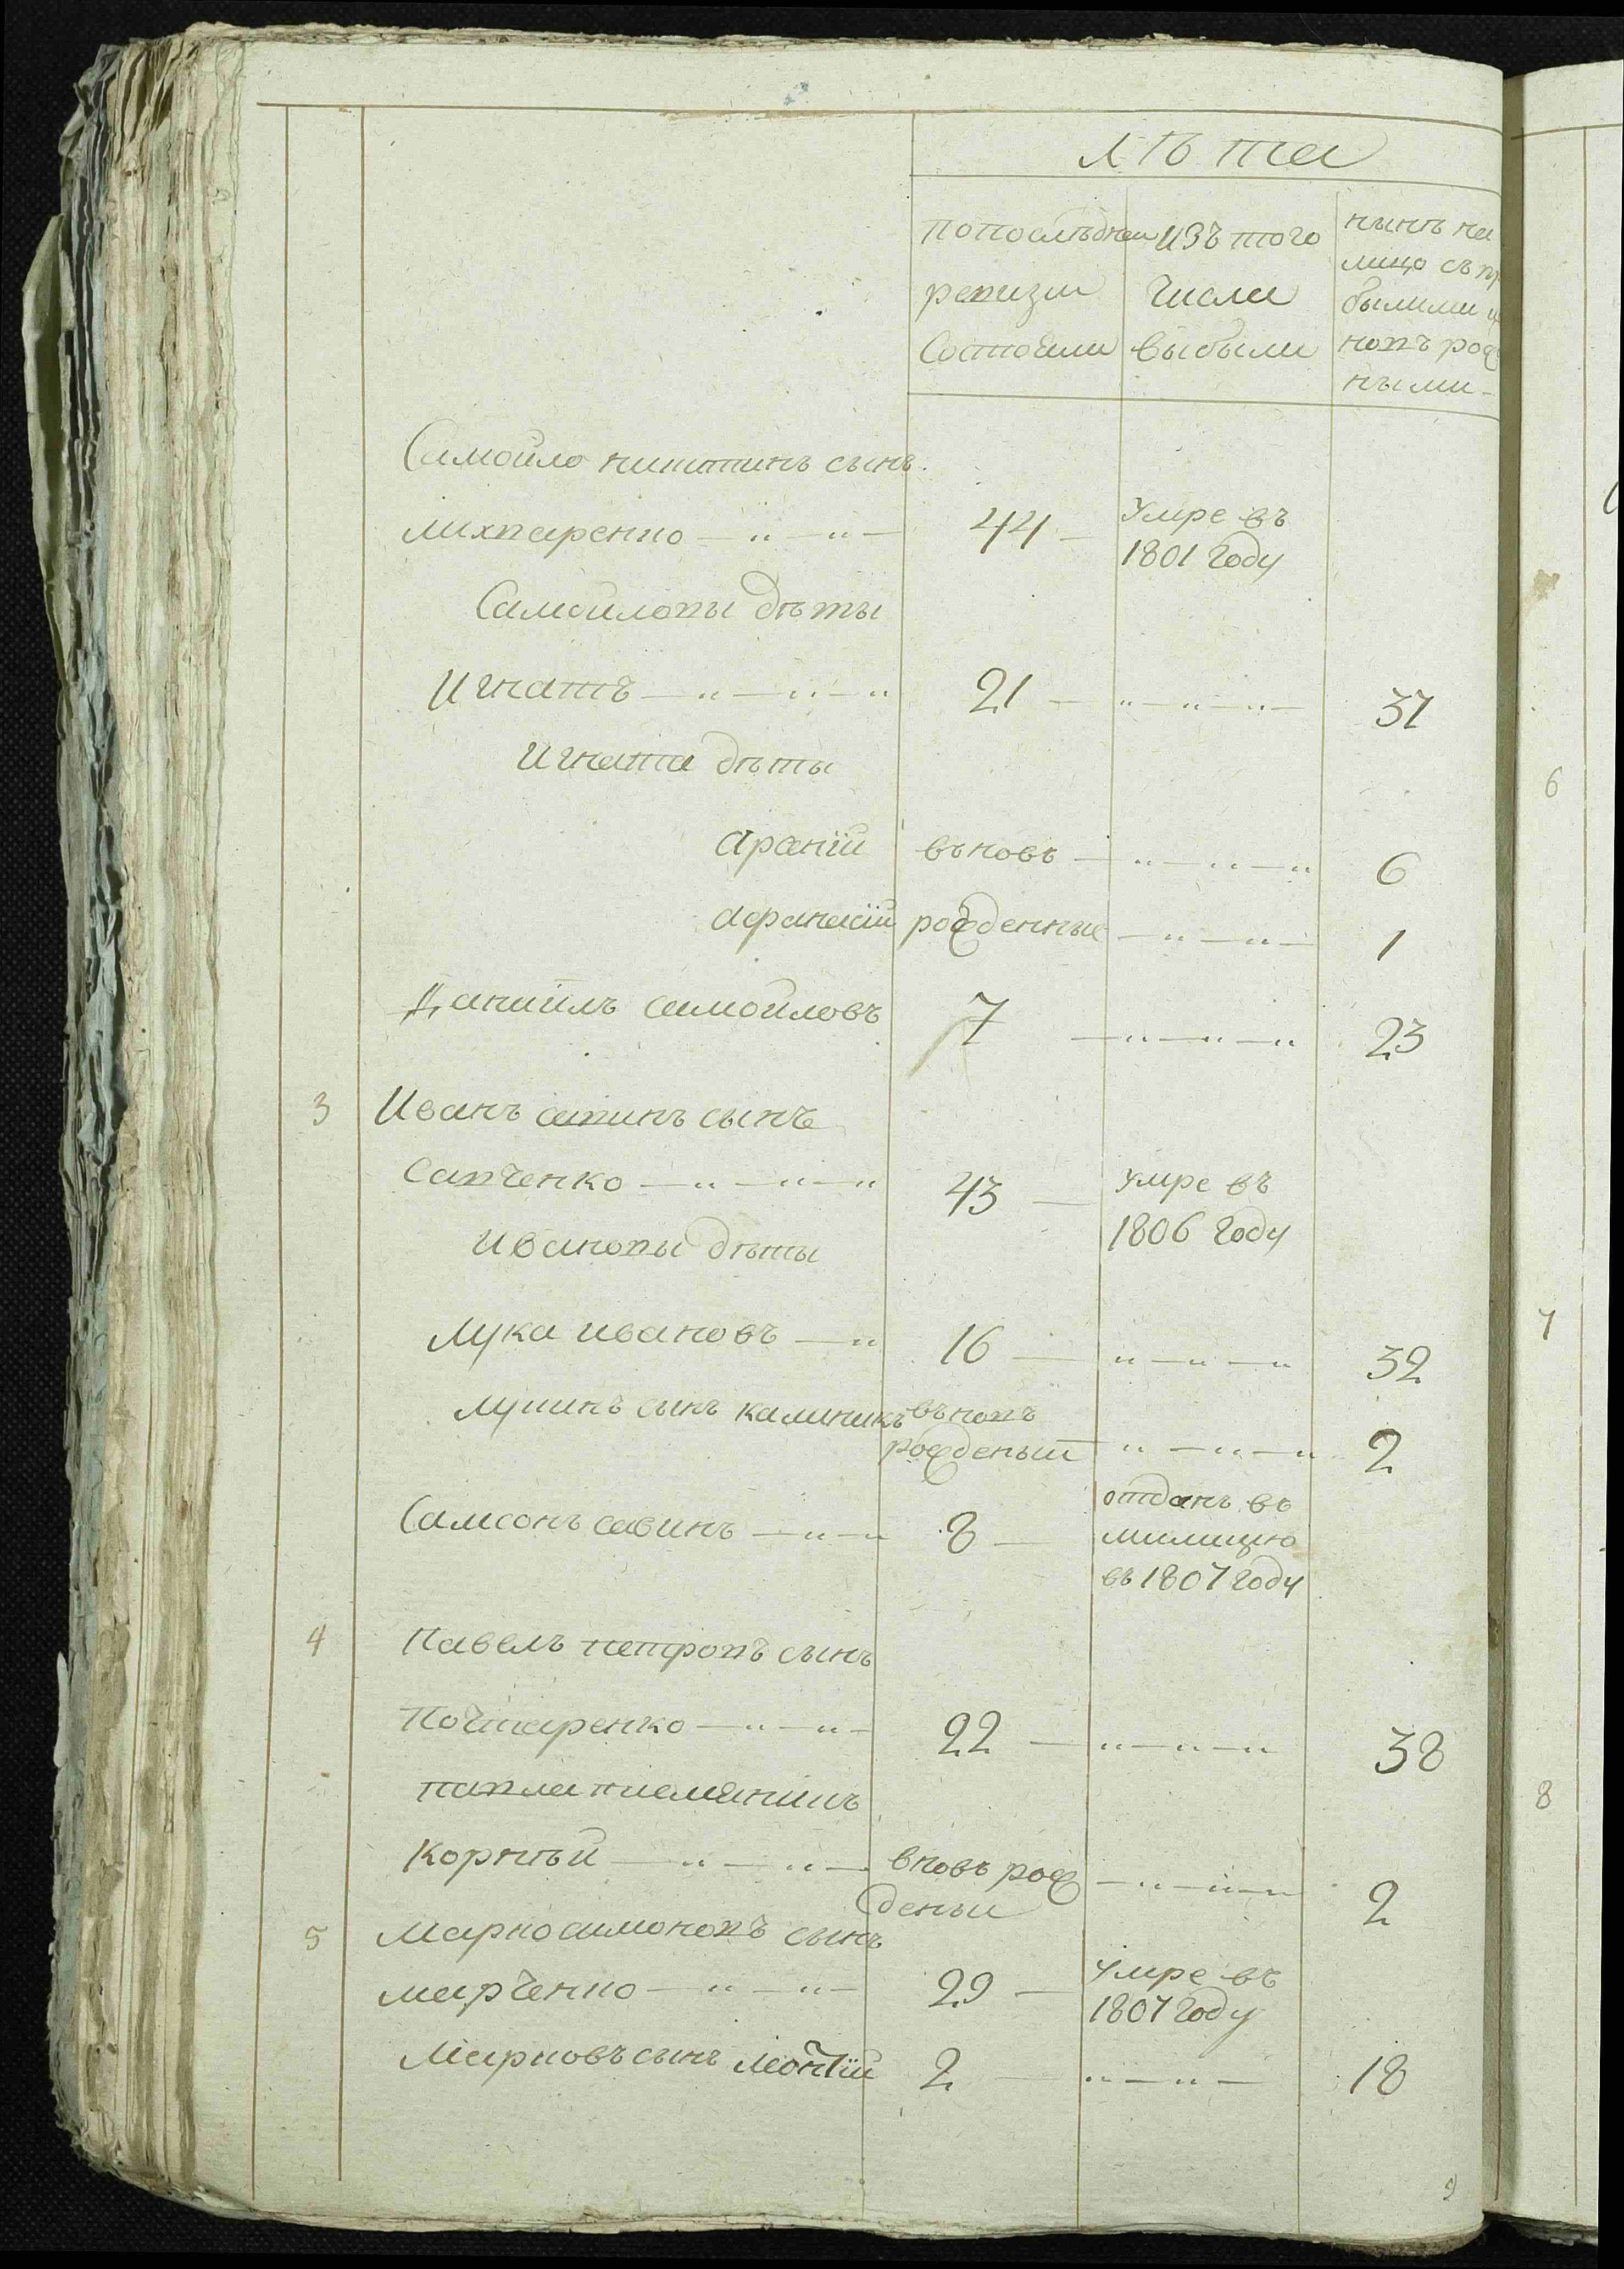 лѣта
по последнеи
ревизии
Состояли
изъ того
числа
выбыли
нынѣ на
лицо съ пр
былыми и
новъ рож
ными
Самоило никитинъ сынъ
44
Умре въ
1801 году
Самоиловы дѣты
Игнатъ
21
37
Игната дѣты
вьновь
6
афанасіи
рожденные
1
Даниилъ самоиловъ
7
23
3
Иванъ савинъ сынъ
Савченко
43
умре въ
1806 году
Ивановы дѣты
Лука ивановъ
16
32
Лукинъ сынъ калиникъ
вьновь
рожденыи
2
Самсонъ савинъ
8
отданъ въ
милицию
въ 1807 году
4
Павелъ петровъ сынъ
Почтаренко
22
38
павла племяникъ
Корнѣи
вновь рож
деныи
2
5
Марко симоновъ сынъ
марченко
29
умре въ
1807 году
Марковъ сынъ
2
18
6
7
8